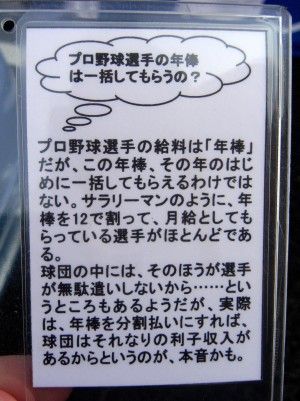 プロ野球選手の年俸
は一括してもらうの？
プロ野球選手の給料は「年棒」
だが、この年棒、その年のはじ
めに一括してもらえるわけでは
ない。サラリーマンのように、年
棒を12で割って、月給としても
らっている選手がほとんどであ
る。
球団の中には、そのほうが選手
が無駄遣いしないから……とい
うところもあるようだが、実際
は、年棒を分割払いにすれば、
球団はそれなりの利子収入が
あるからというのが、本音かも。